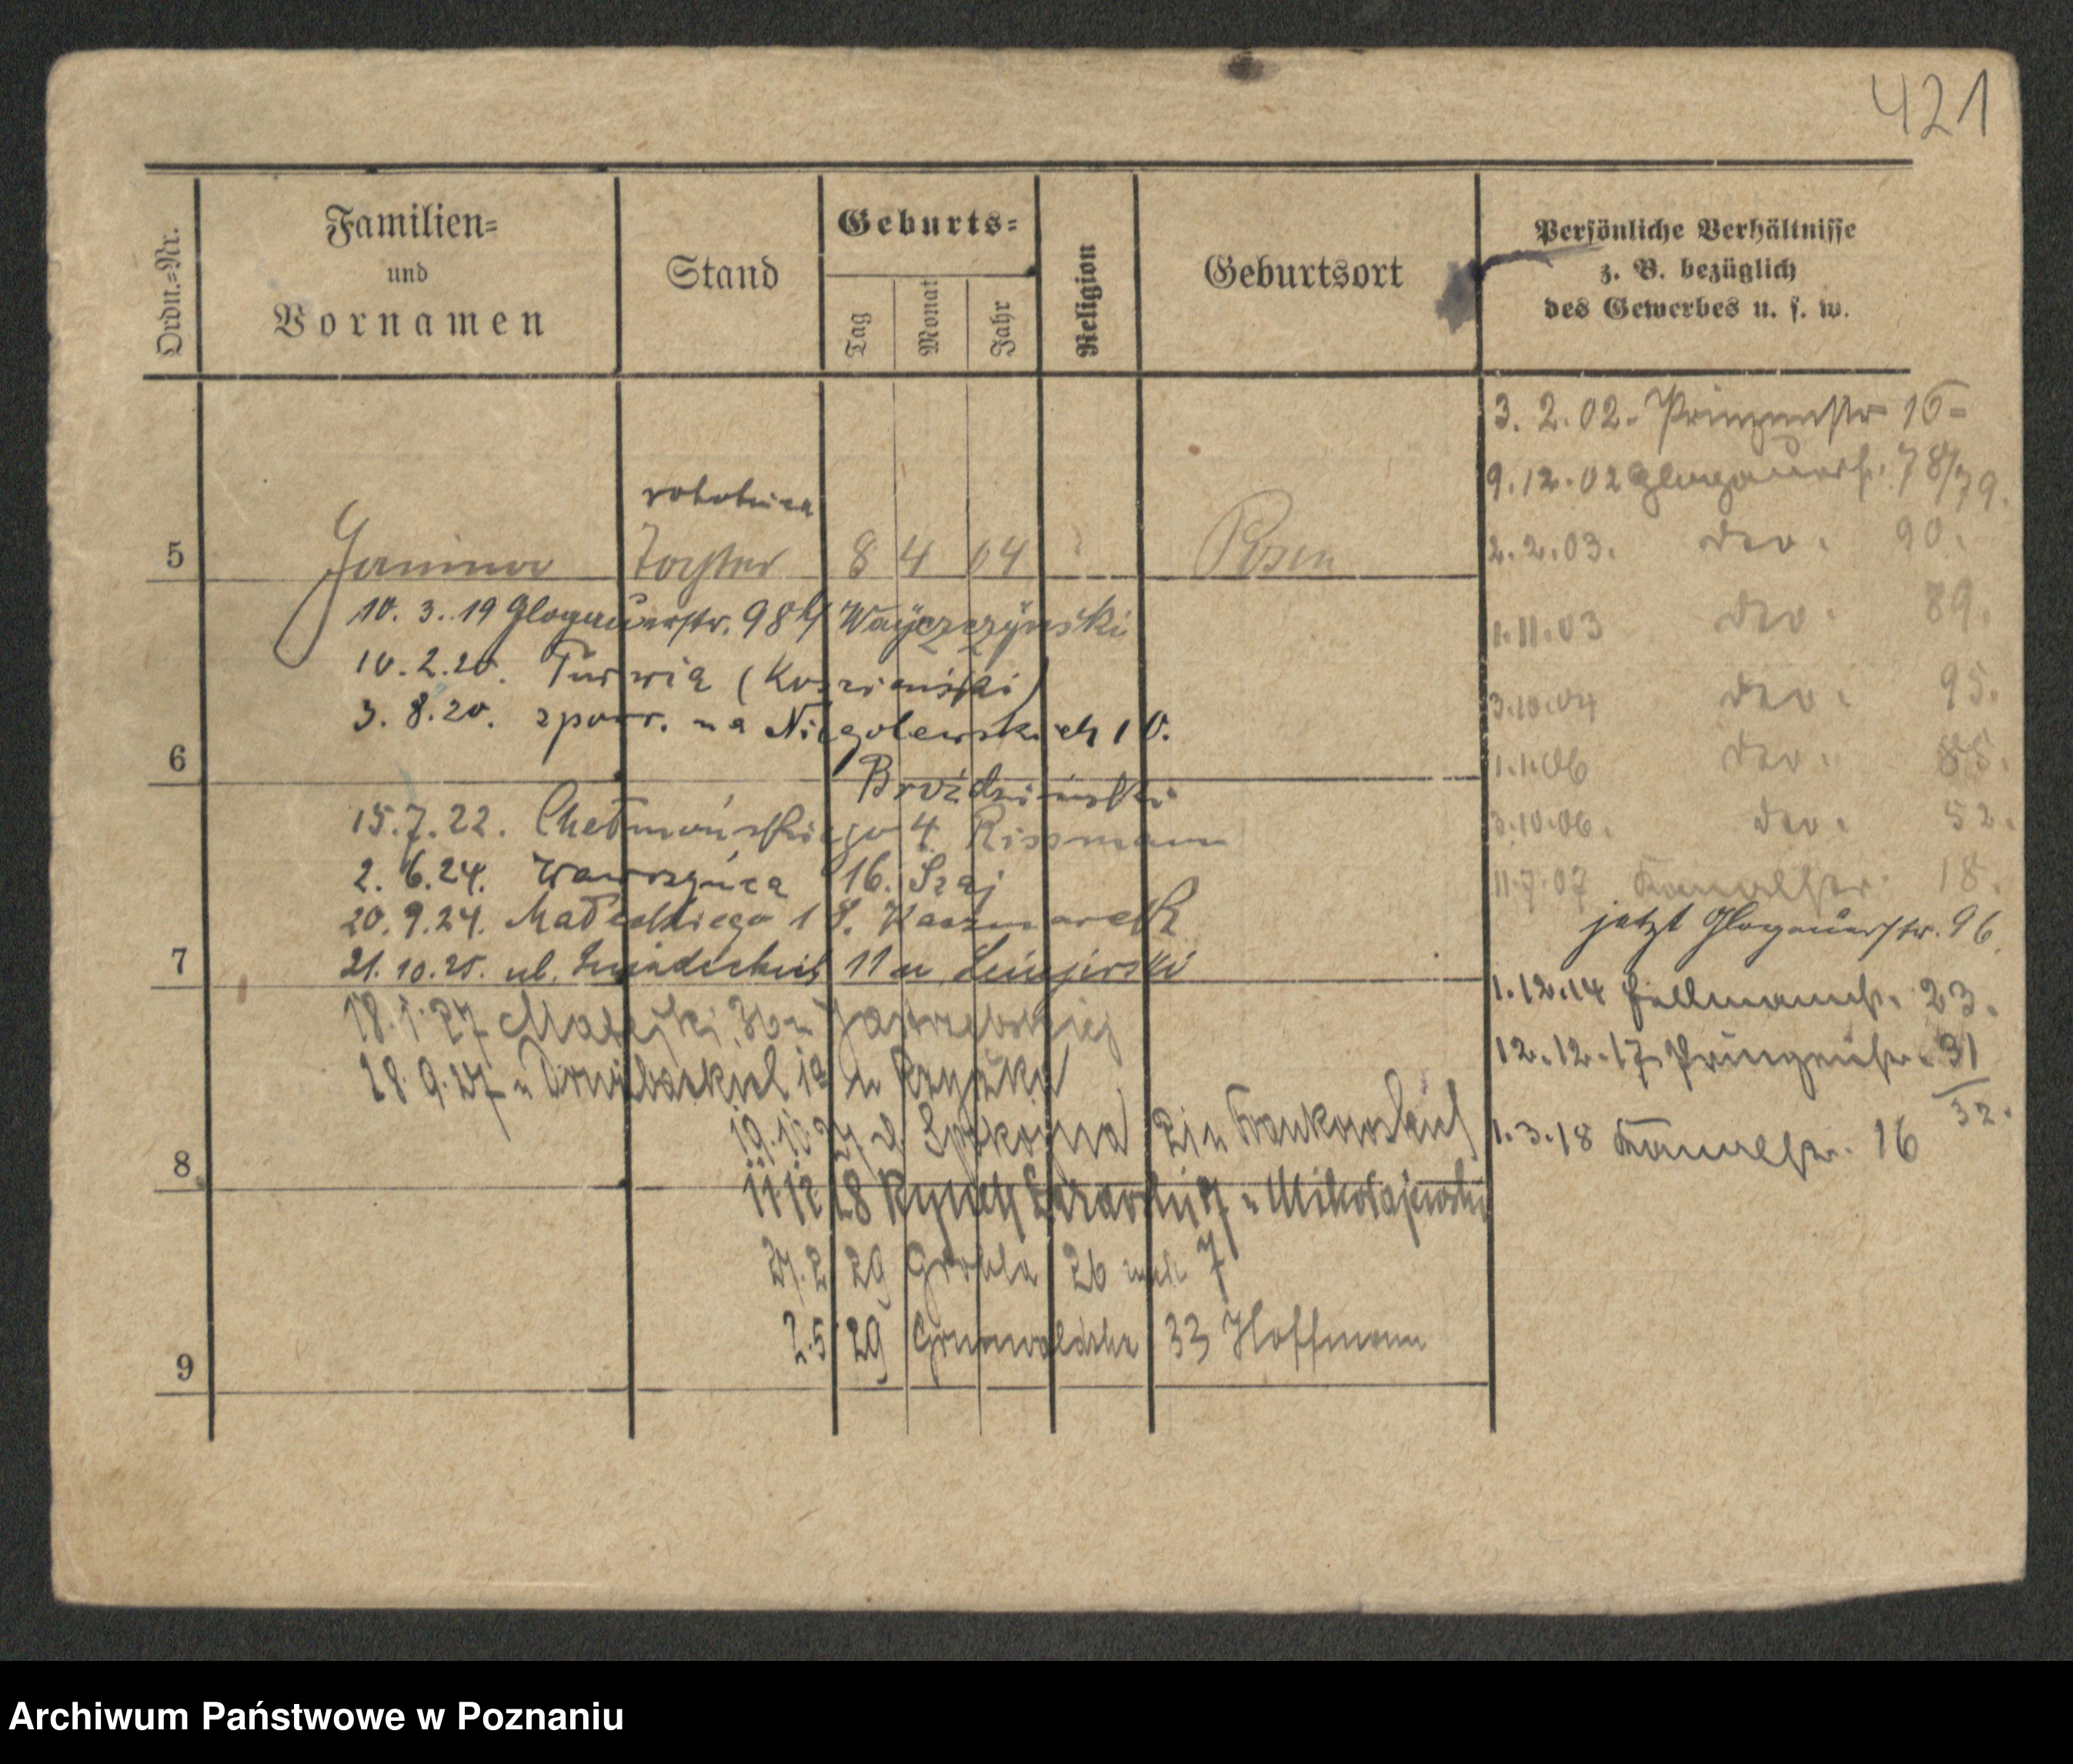 421
Ordn.=Nr.
Familien=
und
Vornamen
Stand
Geburts=
Tag
Monat
Jahr
Religion
Geburtsort
Persönliche Verhältnisse
z. B. bezüglich
des Gewerbes u. s. w.
3. 2. 02. Prinzenstr 16
9.12.02 Glogauerstr. 78/79.
2.2.03. dto. 90.
1.11.03 dto. 89.
3.10.04 dto. 95.
1.1.06 dto. 85.
3.10.06. dto. 52.
11.7.07 Kanalstr. 18.
jetzt Glogauerstr. 96.
1.12.14 Hellmannstr. 23.
12.12.17 Prinzenstr. 31
32.
1.3.18 Kanalstr. 16
robotnica
5 Janina Tochter 8 4 04 Posen
10. 3. 19 Glogauerstr. 98 Wayczczynski
10.2.20. Turwia (Kościański)
3. 8.20. spowr. na Niegolewskich 10.
6
Brodziński
15.7.22. Chełmońskiego 4 Rissmann
2. 6.24. Wawrzyńca 16. Szaj
20.9.24. Małeckiego 18. Kaczmarek
7
21.10.25. ul. Śniadeckich 11 u
18.1.27 Matejki 36 u Jastrzebskiej
28.9.27 u
19.10.27 ul. Spokojna 21 u Frankowskich
8
11 12 28 Rynek Łazarski 17 u Mikołajewski
27.2 29 Grobla 26 m 7
2.5 29 Grunwaldzka 33 Hoffmann
9
Archiwum Państwowe w Poznaniu